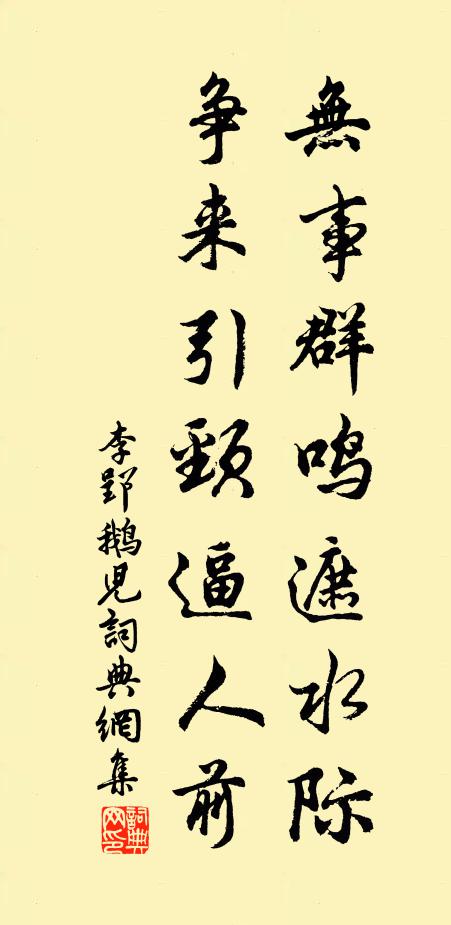 無事群鸣遮水际
争来引頸逼人前
李郢鵝児詞典網集
詞典网印